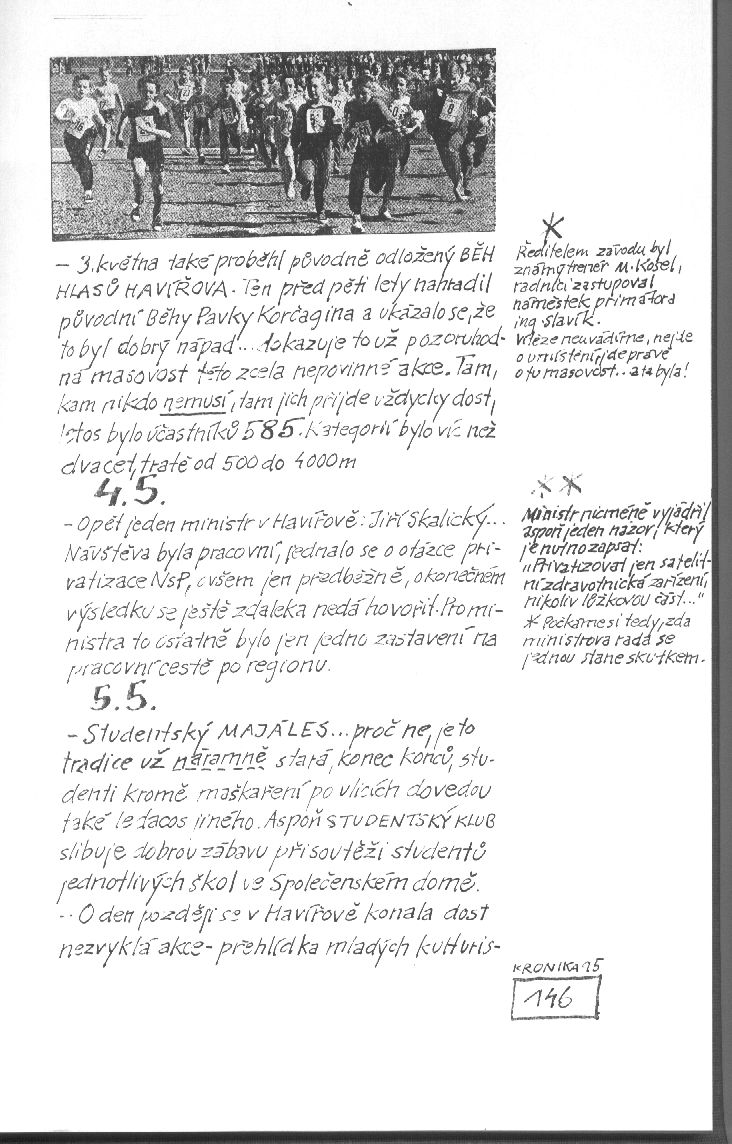 – 3. května také proběhl původně odložený BĚH
HLASŮ HAVÍŘOVA. Ten před pěti lety nahradil
původní Běhy Pavky Korčagina a ukázalo se, že
to byl dobrý nápad... dokazuje to už pozoruhod-
ná masovost této zcela nepovinné akce. Tam,
kam nikdo nemusí, tam jich přijde vždycky dost,
letos bylo účastníků 585. Kategorií bylo víc než
dvacet, tratě od 500 do 4000 m
*
Ředitelem závodu byl
známý trenér M. Košel,
radnici zastupoval
náměstek primátora
ing. Slavík.
Vítěze neuvádíme, nejde
o umístění, jde právě
o tu masovost.. a ta byla!
4.5.
– Opět jeden ministr v Havířově: Jiří Skalický...
Návštěva byla pracovní, jednalo se o otázce pri-
vatizace NsP, ovšem jen předběžně, o konečném
výsledku se ještě zdaleka nedá hovořit. Pro mi-
nistra to ostatně bylo jen jedno zastavení na
pracovní cestě po regionu.
**
Ministr nicméně vyjádřil
aspoň jeden názor, který
je nutno zapsat:
„Privatizovat jen satelit-
ní zdravotnická zařízení,
nikoliv lůžkovou část..."
* Počkáme si tedy, zda
ministrova rada se
jednou stane skutkem.
5.5.
– Studentský MAJÁLES... proč ne, je to
tradice už náramně stará, konec konců, stu-
denti kromě maškaření po ulicích dovedou
také ledacos jiného. Aspoň STUDENTSKÝ KLUB
slibuje dobrou zábavu při soutěži studentů
jednotlivých škol ve Společenském domě.
-- O den později se v Havířově konala dost
nezvyklá akce – přehlídka mladých kulturis-
KRONIKA 95
146